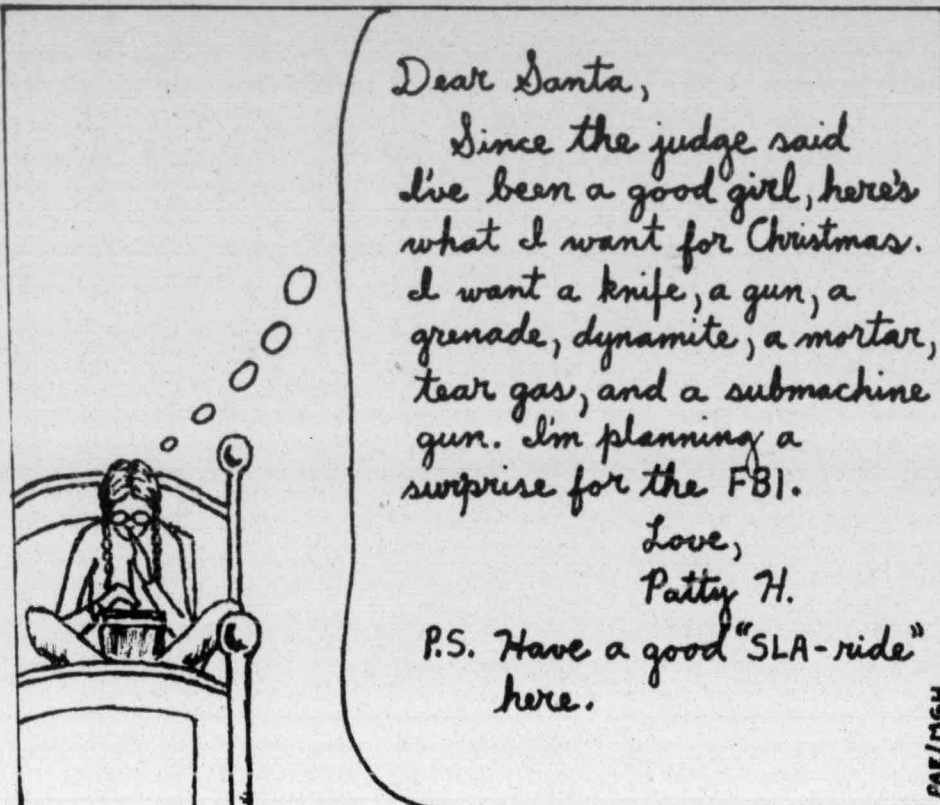 Dear Santa,
Since the judge said
I've been a good girl, here's
what I want for Christmas.
I want a knife, a gun, a
grenade, dynamite, a mortar,
tear gas, and a submachine
gun. I'm planning a
surprise for the FBI.
Love,
Patty H.
P.S. Have a good "SLA-ride"
here.
PAE/MGH